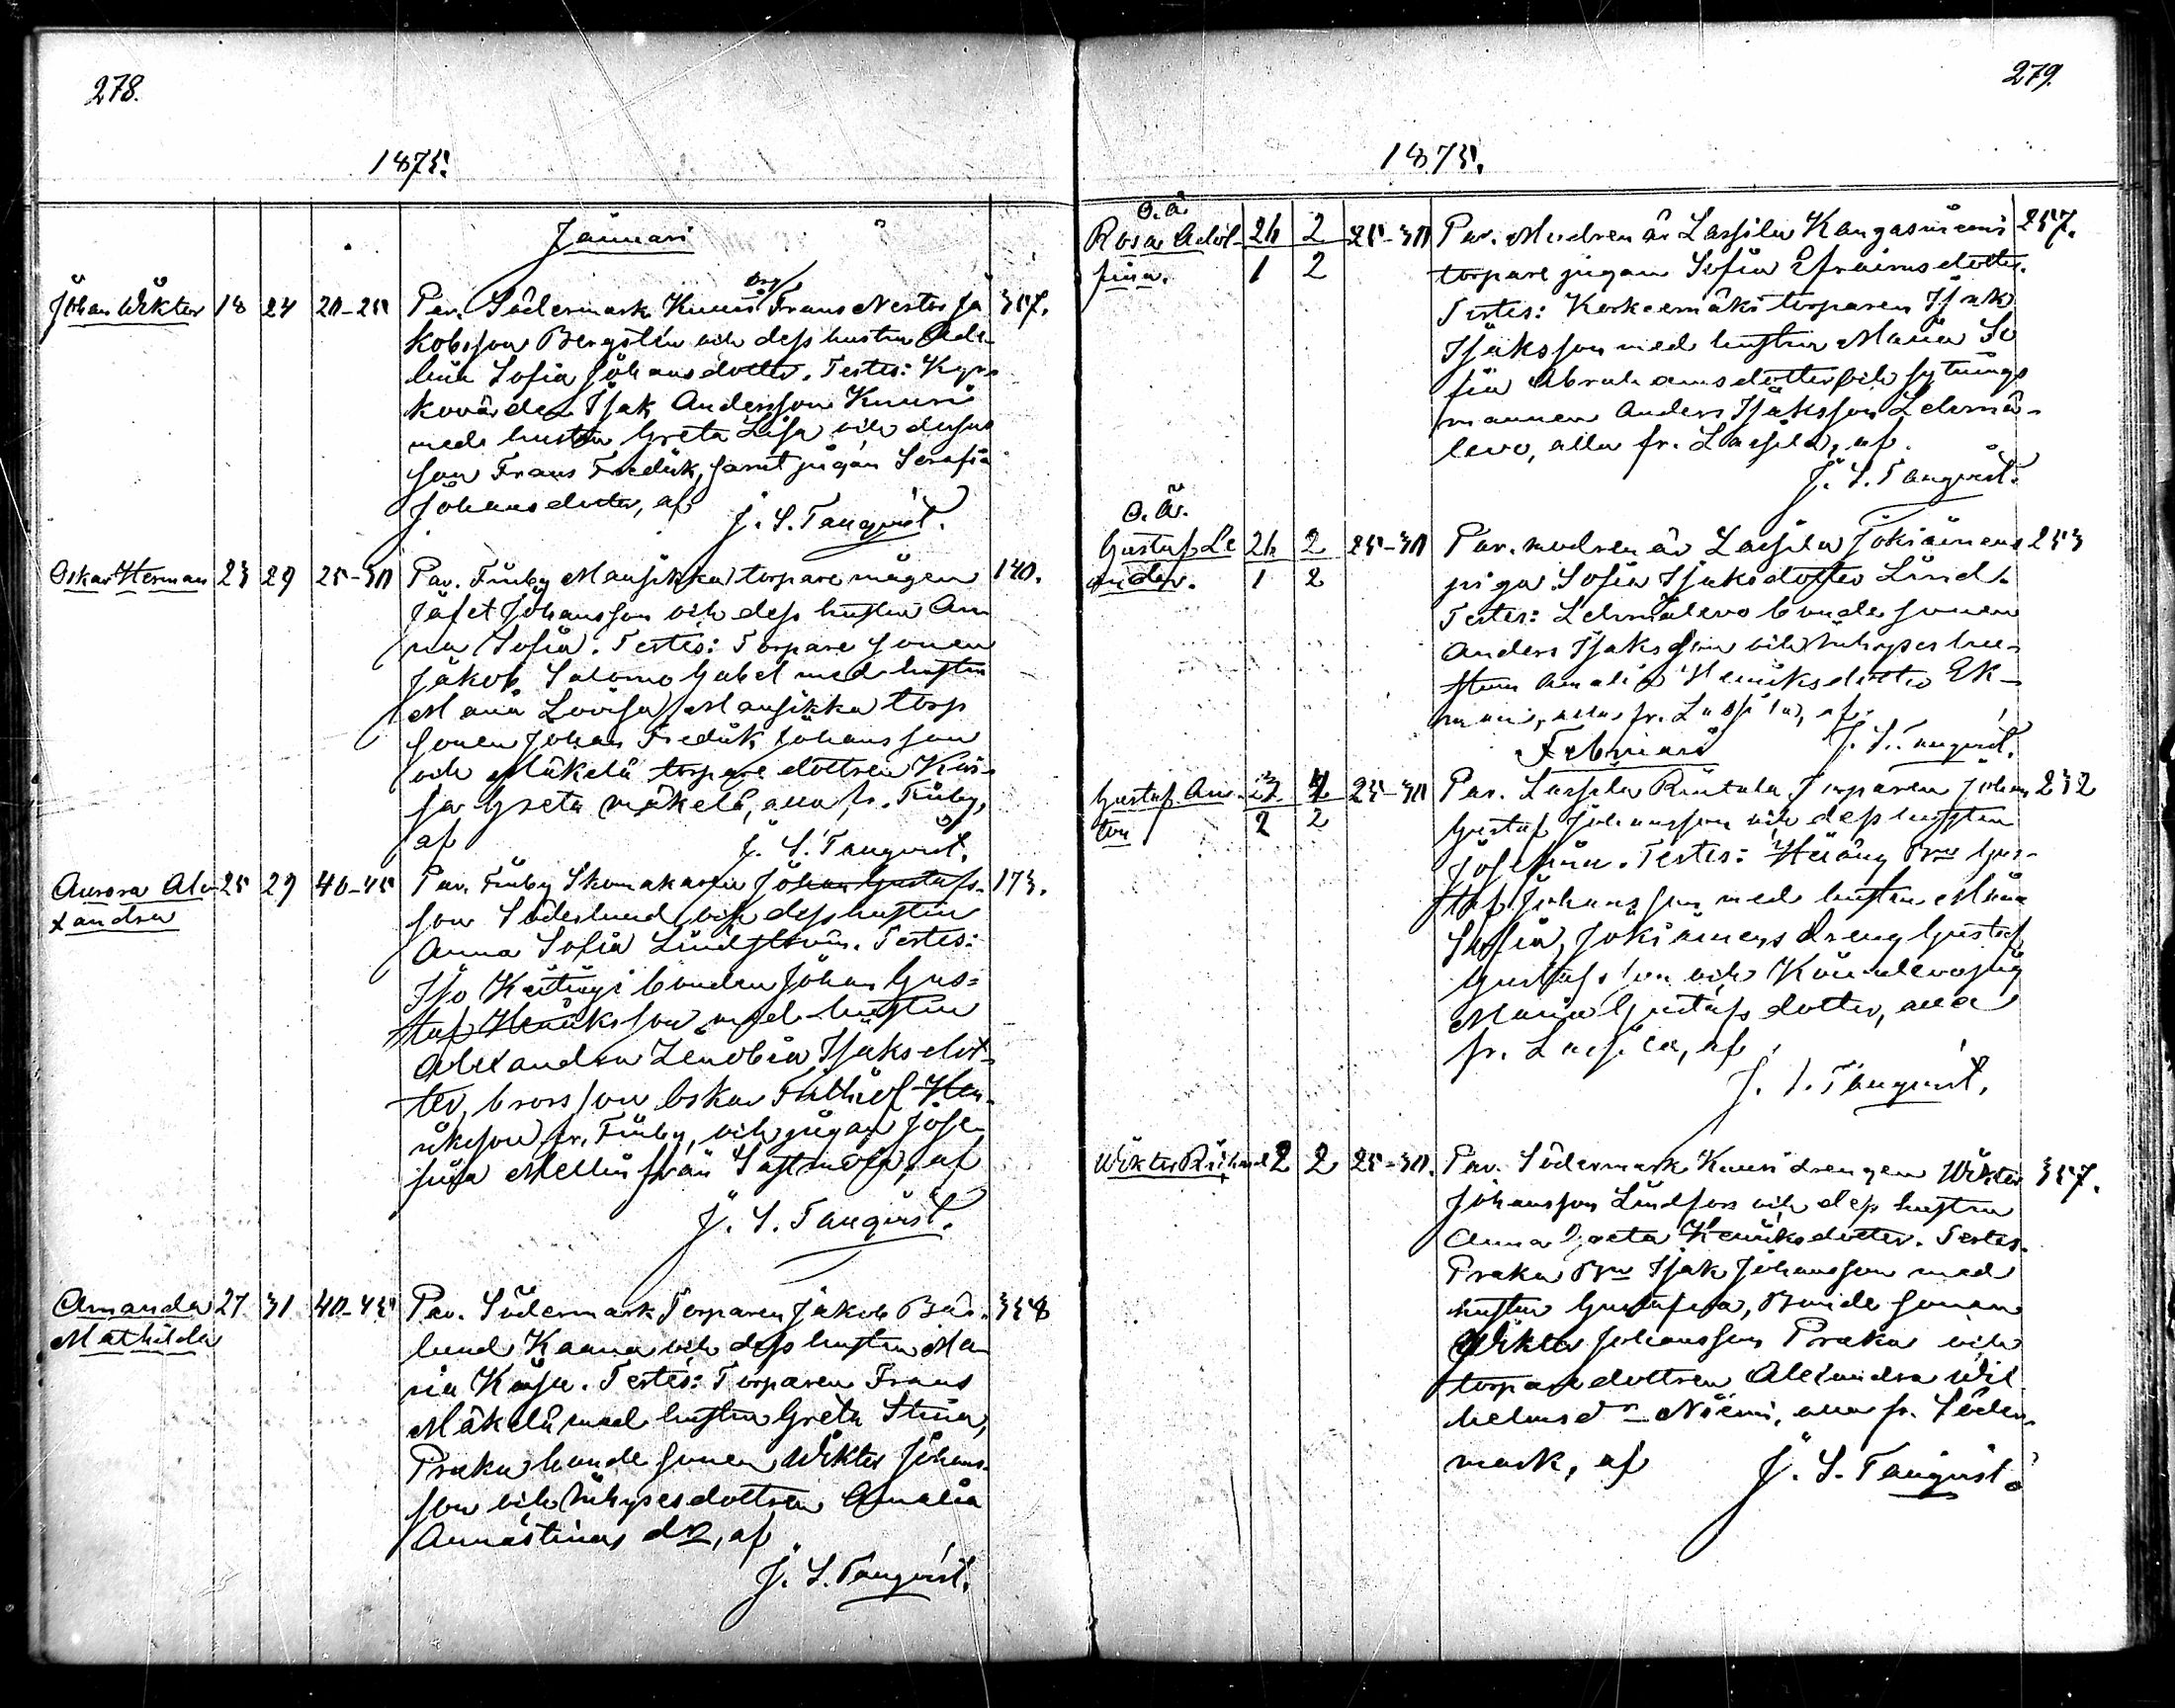 278.
1875.
Januari
Johan Wiktor 18 24 20-25 Par. Södermark Knuusi Drg Frans Nestor Ja 357.
kobsson Bergsten och dess hustru Ade-
lina Sofia Johansdotter. Testes: Kyr-
kovärden Isak Andersson Knuusi
med hustru Greta Lisa och desses
son Frans Fredrik, samt pigan Serafia
Johansdotter, af J. S. Tanqvist.
Oskar Herman 23 29 25-30 Par. Finby Mansikka torpare mågen 140.
Jafet Johansson och dess hustru An
na Sofia. Testes: Torpare sonen
Jakob Salomo Gabel med hustru
Maria Lovisa, Mansikka torp
sonen Johan Fredrik Johansson
och Mäkelä torpare dottren Kai-
sa Greta Mäkelä, alla fr. Finby,
af J. S. Tanqvist.
Aurora Ale- 25 29 40-45 Par. Finby Skomakaren Johan Gustafs- 173.
xandra son Söderlund och dess hustru
Anna Sofia Lindström. Testes:
Iso bonden Johan Gus-
taf Henriksson med hustru
Alexandra Zenobia Isaksdot-
ter, brorsson Oskar Frithiof Hen-
riksson fr. Finby, och pigan Jose-
fina Mellin från Sastmola, af
J. S. Tanqvist.
Amanda 27 31 40-45 Par. Södermark Torparen Jakob Bär- 358
Mathilda lund Kaana och dess hustru Ma
ria Kajsa. Testes: Torparen Frans
Mäkelä med hustru Greta Stina,
Praka bonde sonen Wiktor Johans-
son och inhyses dottren Amalia
Annastinas dr, af
J. S. Tanqvist.
279.
1875.
O. Ä.
Rosa Adol- 26 2 25-30 Par. Modren är Lassila Kangasniemi 257.
fina. 1 2 torpare pigan Sofia Efraimsdotter.
Testes: Korkeemäki torparen Isak
Isaksson med hustru Maria So
fia Abrahamsdotter och sytnings
mannen Anders Isaksson Lehmä-
levo, alla fr. Lassila, af
J. S. Tanqvist.
O. Ä.
Gustaf Le 26 2 25-30 Par. modren är Lassila Jokiainens 253
ander. 1 2 piga Sofia Isaksdotter Lind.
Testes: Lehmälevo bonde sonen
Anders Isaksson och inhyses hu-
strun Amalia Henriksdotter Ek-
man, alla fr. Lassila, af
Februari J. S. Tanqvist.
Gustaf An- 25-30 Par. Lassila Torparen Johan 232
ton 2 2 Gustaf Johansson och dess hustru
Josefina. Testes: Bn Gus-
taf Johansson med hustru Maria
Sofia, Jokiainens dreng Gustaf
Gustafsson och pig
Maria Gustafsdotter, alla
fr. Lassila, af
J. S. Tanqvist.
Wiktor 2 2 25-30. Par. Södermark Knuusi drengen Wiktor 357.
Johansson Lindfors och dess hustru
Anna Greta Henriksdotter. Testes.
Praka Bn Isak Johansson med
hustru Gustafva, Bonde sonen
Wiktor Johansson Praka och
torpare dottren Alexandra Wil
helmsdr Niemi, alla fr. Söder-
mark, af J. S. Tanqvist.